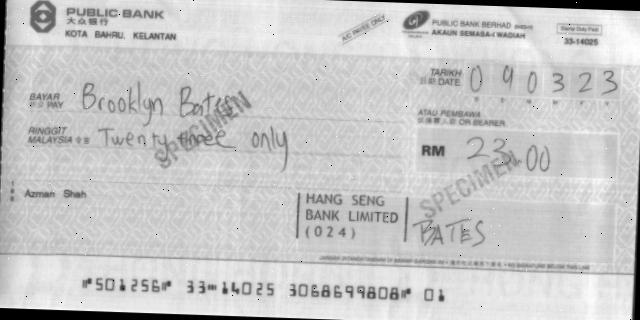 PUBLIC BANK
大众银行
KOTA BAHRU, KELANTAN
A/C PAYEE ONLY
PUBLIC BANK BERHAD
AKAUN SEMASA-i WADIAH
Stamp Duty Paid
33-14025
TARIKH
DATE
090323
BAYAR
PAY
Brooklyn Bates
ATAU PEMBAWA
OR BEARER
RINGGIT
MALAYSIA
Twenty three only
RM 23.00
SPECIMEN
SPECIMEN
Azman Shah
HANG SENG
BANK LIMITED
(024)
BATES
⑈501256⑈ 33⑉14025 3068699808⑈ 01